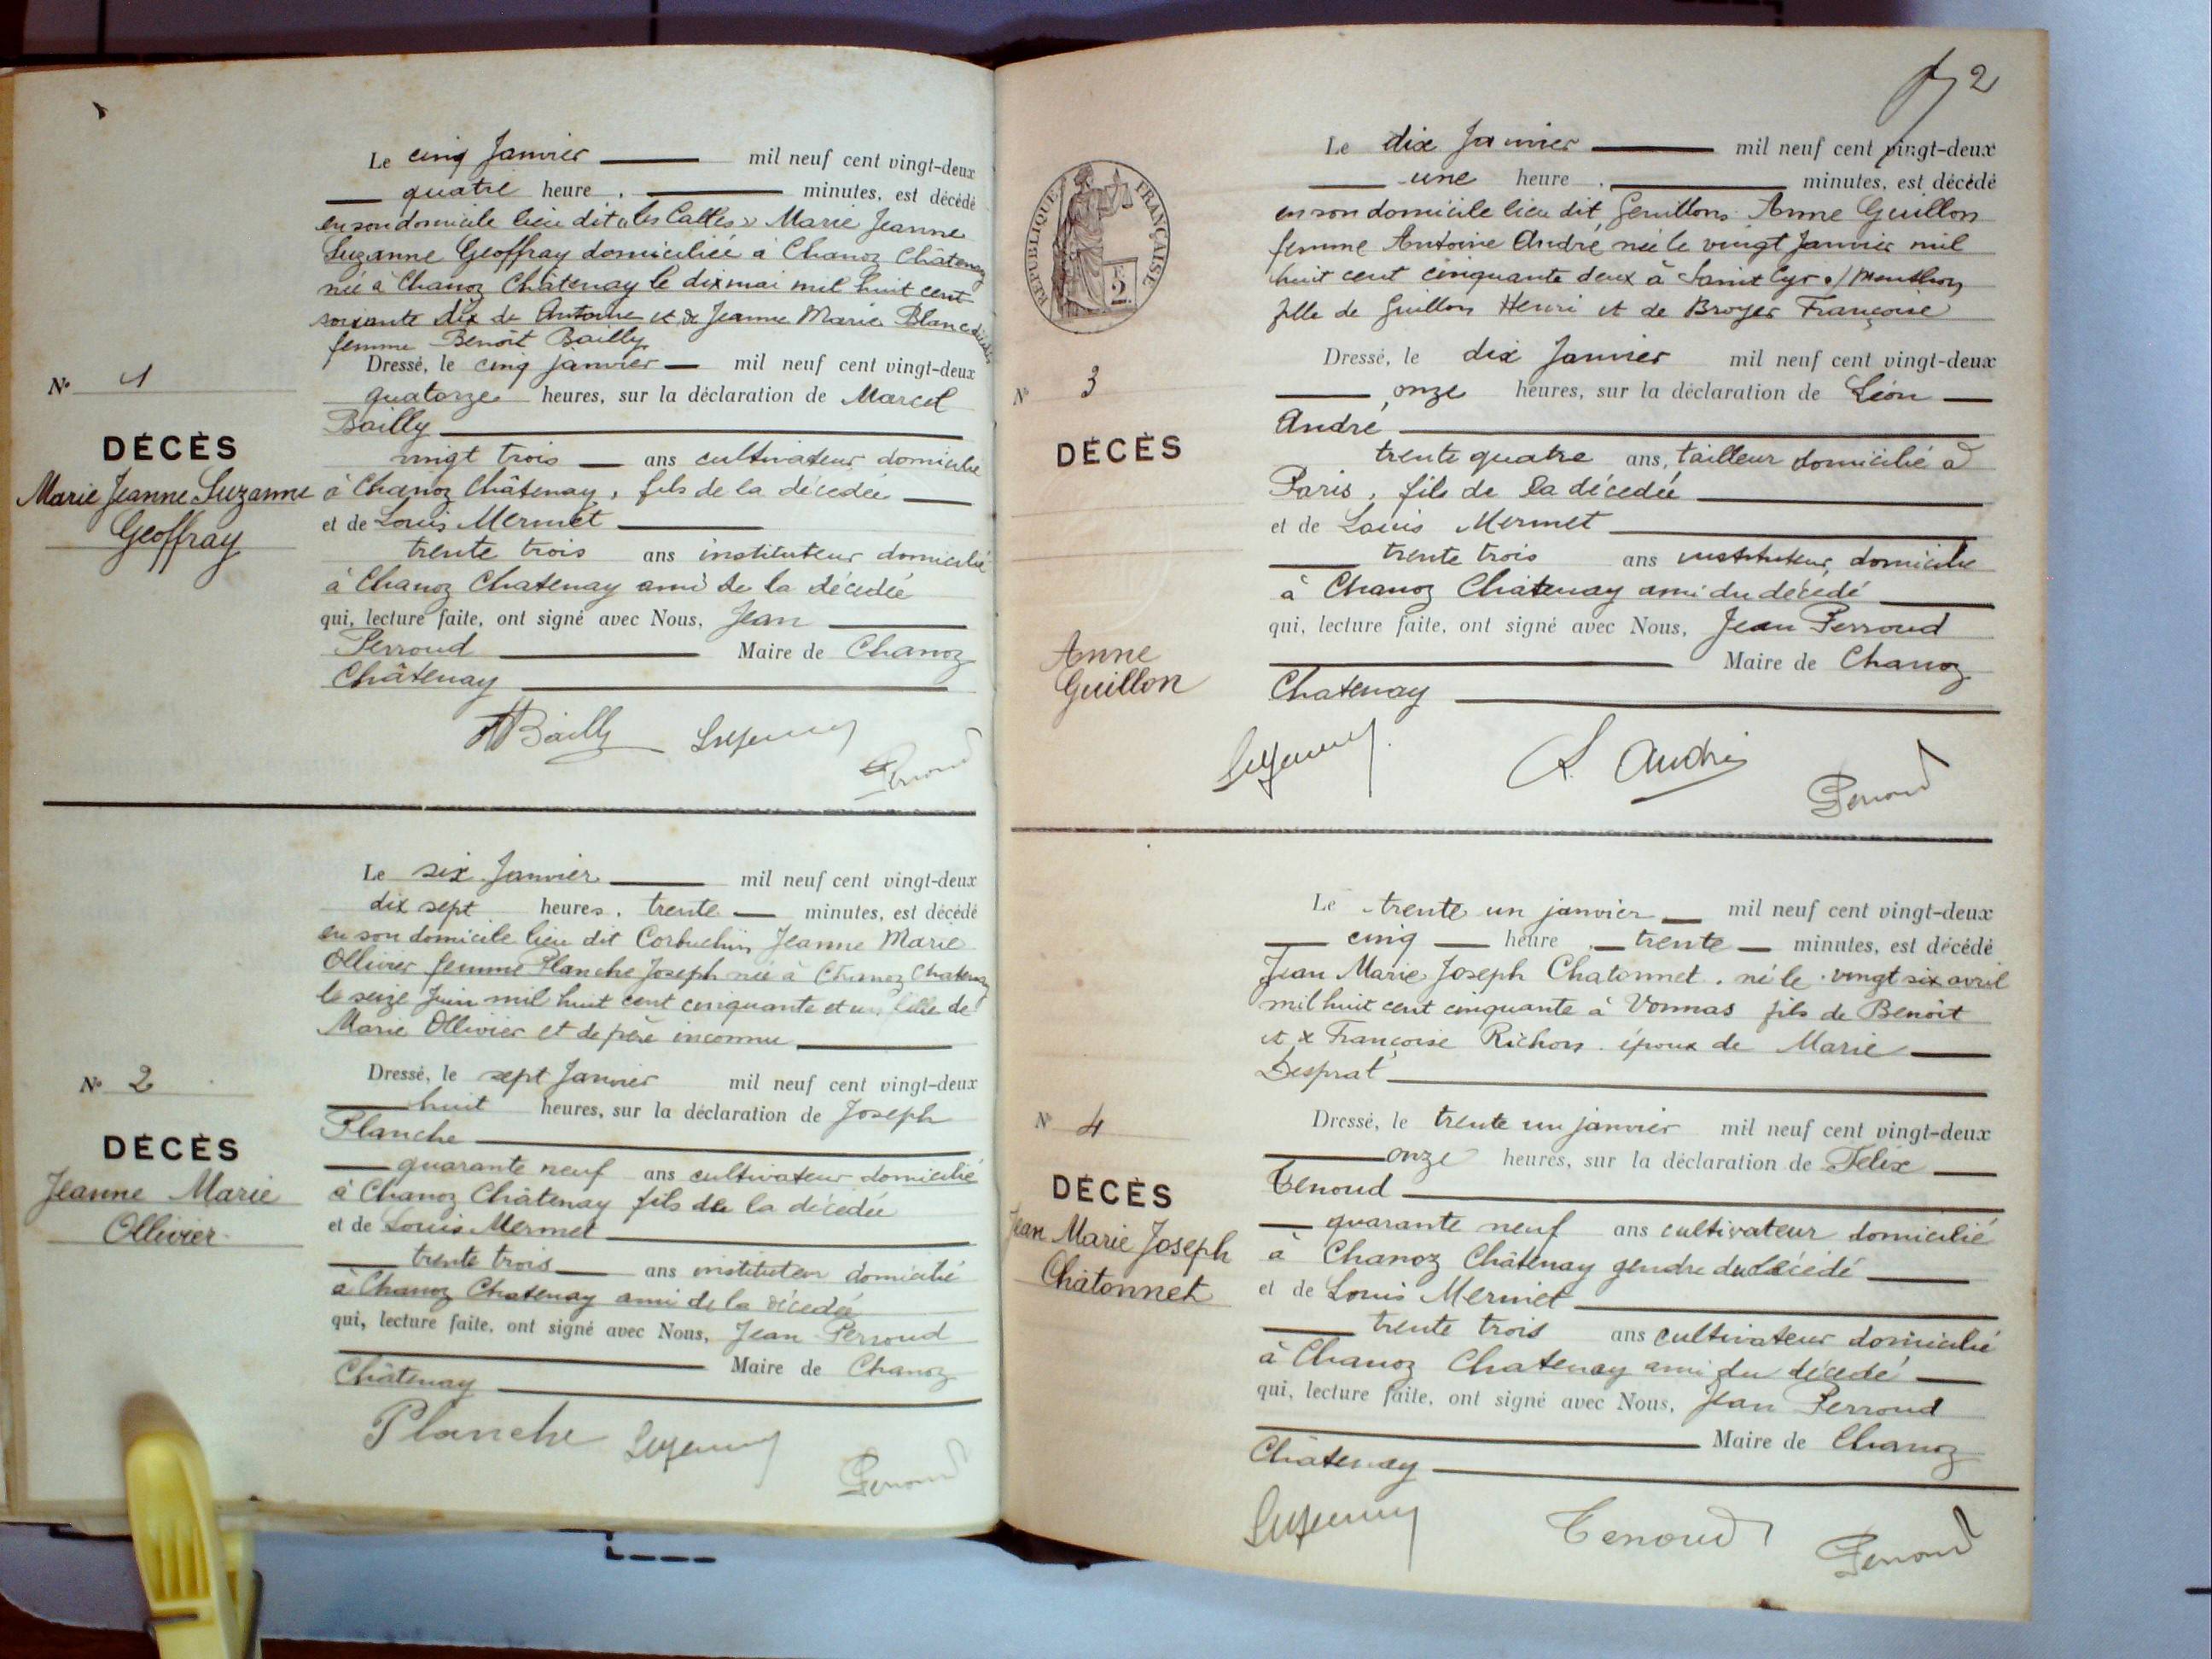 Le cinq Janvier mil neuf cent vingt-deux
quatre heure , minutes, est décédé
en son domicile lieu dit « les Calles » Marie Jeanne
Suzanne Geoffray domiciliée à Chanoz Châtenay
née à Chanoz Châtenay le dix mai mil huit cent
soixante dix de Antoine et de Jeanne Marie Blanc décédés
femme Benoît Bailly
Dressé, le cinq janvier mil neuf cent vingt-deux
quatorze heures, sur la déclaration de Marcel
Bailly
vingt trois ans cultivateur domicilié
à Chanoz Châtenay, fils de la décedée
et de Louis Mermet
trente trois ans instituteur domicilié
à Chanoz Chatenay ami de la décedée
qui, lecture faite, ont signé avec Nous, Jean
Perroud Maire de Chanoz
Châtenay
N° 1
DÉCÈS
Marie Jeanne Suzanne
Geoffray
Bailly
Perroud
Le six Janvier mil neuf cent vingt-deux
dix sept heures, trente minutes, est décédé
en son domicile lieu dit Jeanne Marie
Ollivier femme Planche Joseph née à Chanoz Chatenay
le seize Juin mil huit cent cinquante et un fille de
Marie Ollivier et de père inconnu
Dressé, le sept Janvier mil neuf cent vingt-deux
huit heures, sur la déclaration de Joseph
Planche
quarante neuf ans cultivateur domicilié
à Chanoz Châtenay fils de la décédée
et de Louis Mermet
trente trois ans instituteur domicilié
à Chanoz Chatenay ami de la décedée
qui, lecture faite, ont signé avec Nous, Jean Perroud
Maire de Chanoz
Châtenay
N° 2
DÉCÈS
Jeanne Marie
Ollivier
Planche
Perroud
2
RÉPUBLIQUE FRANÇAISE
2
Le dix Janvier mil neuf cent vingt-deux
une heure , minutes, est décédé
en son domicile lieu dit Genillons Anne Guillon
femme Antoine André née le vingt Janvier mil
huit cent cinquante deux à Saint Cyr s/ Menthon
fille de Guillon Henri et de Broyer Françoise
Dressé, le dix Janvier mil neuf cent vingt-deux
onze heures, sur la déclaration de Léon
André
trente quatre ans, tailleur domicilié à
Paris, fils de la décedée
et de Louis Mermet
trente trois ans instituteur, domicilié
à Chanoz Châtenay ami du décédé
qui, lecture faite, ont signé avec Nous, Jean Perroud
Maire de Chanoz
Chatenay
N° 3
DÉCÈS
Anne
Guillon
L. André
Perroud
Le trente un janvier mil neuf cent vingt-deux
cinq heure , trente minutes, est décédé
Jean Marie Joseph Chatonnet, né le vingt six avril
mil huit cent cinquante à Vonnas fils de Benoît
et de Françoise Richon époux de Marie
Desprat
Dressé, le trente un janvier mil neuf cent vingt-deux
onze heures, sur la déclaration de Félix
Tenoud
quarante neuf ans cultivateur domicilié
à Chanoz Châtenay gendre du décédé
et de Louis Mermet
trente trois ans cultivateur domicilié
à Chanoz Chatenay ami du décedé
qui, lecture faite, ont signé avec Nous, Jean Perroud
Maire de Chanoz
Châtenay
N° 4
DÉCÈS
Jean Marie Joseph
Châtonnet
Tenoud
Perroud